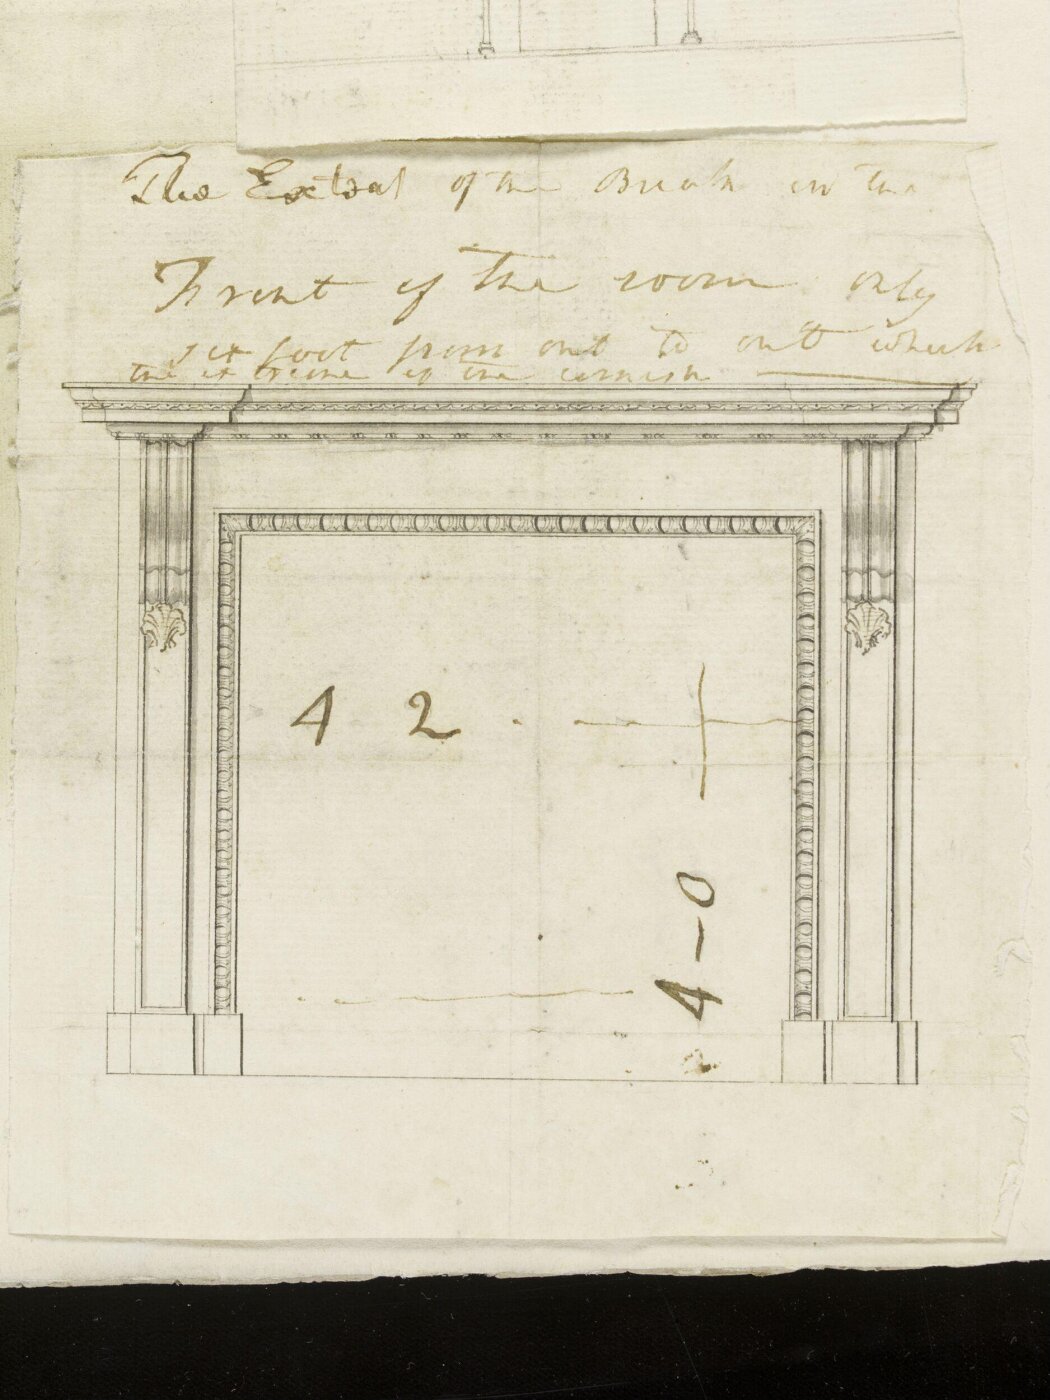 The Extent of the Break in the
Front of the room only
six foot from out to out which
the extreme of the cornish
4 2
4-0